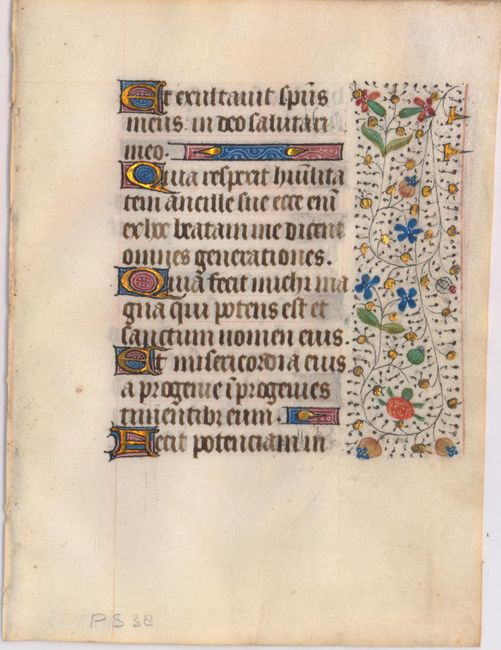 Et exultavit spūs
meus. in deo salutari
meo.
Quia respexit humilita
tem ancille sue ecce enī
ex hoc beatam me dicent
omnes generationes.
Quia fecit michi ma
gna qui potens est et
sanctum nomen eius.
Et misericordia eius
a progenie ī progenies
timentibꝫ eum.
Fecit potenciam in
PS 38